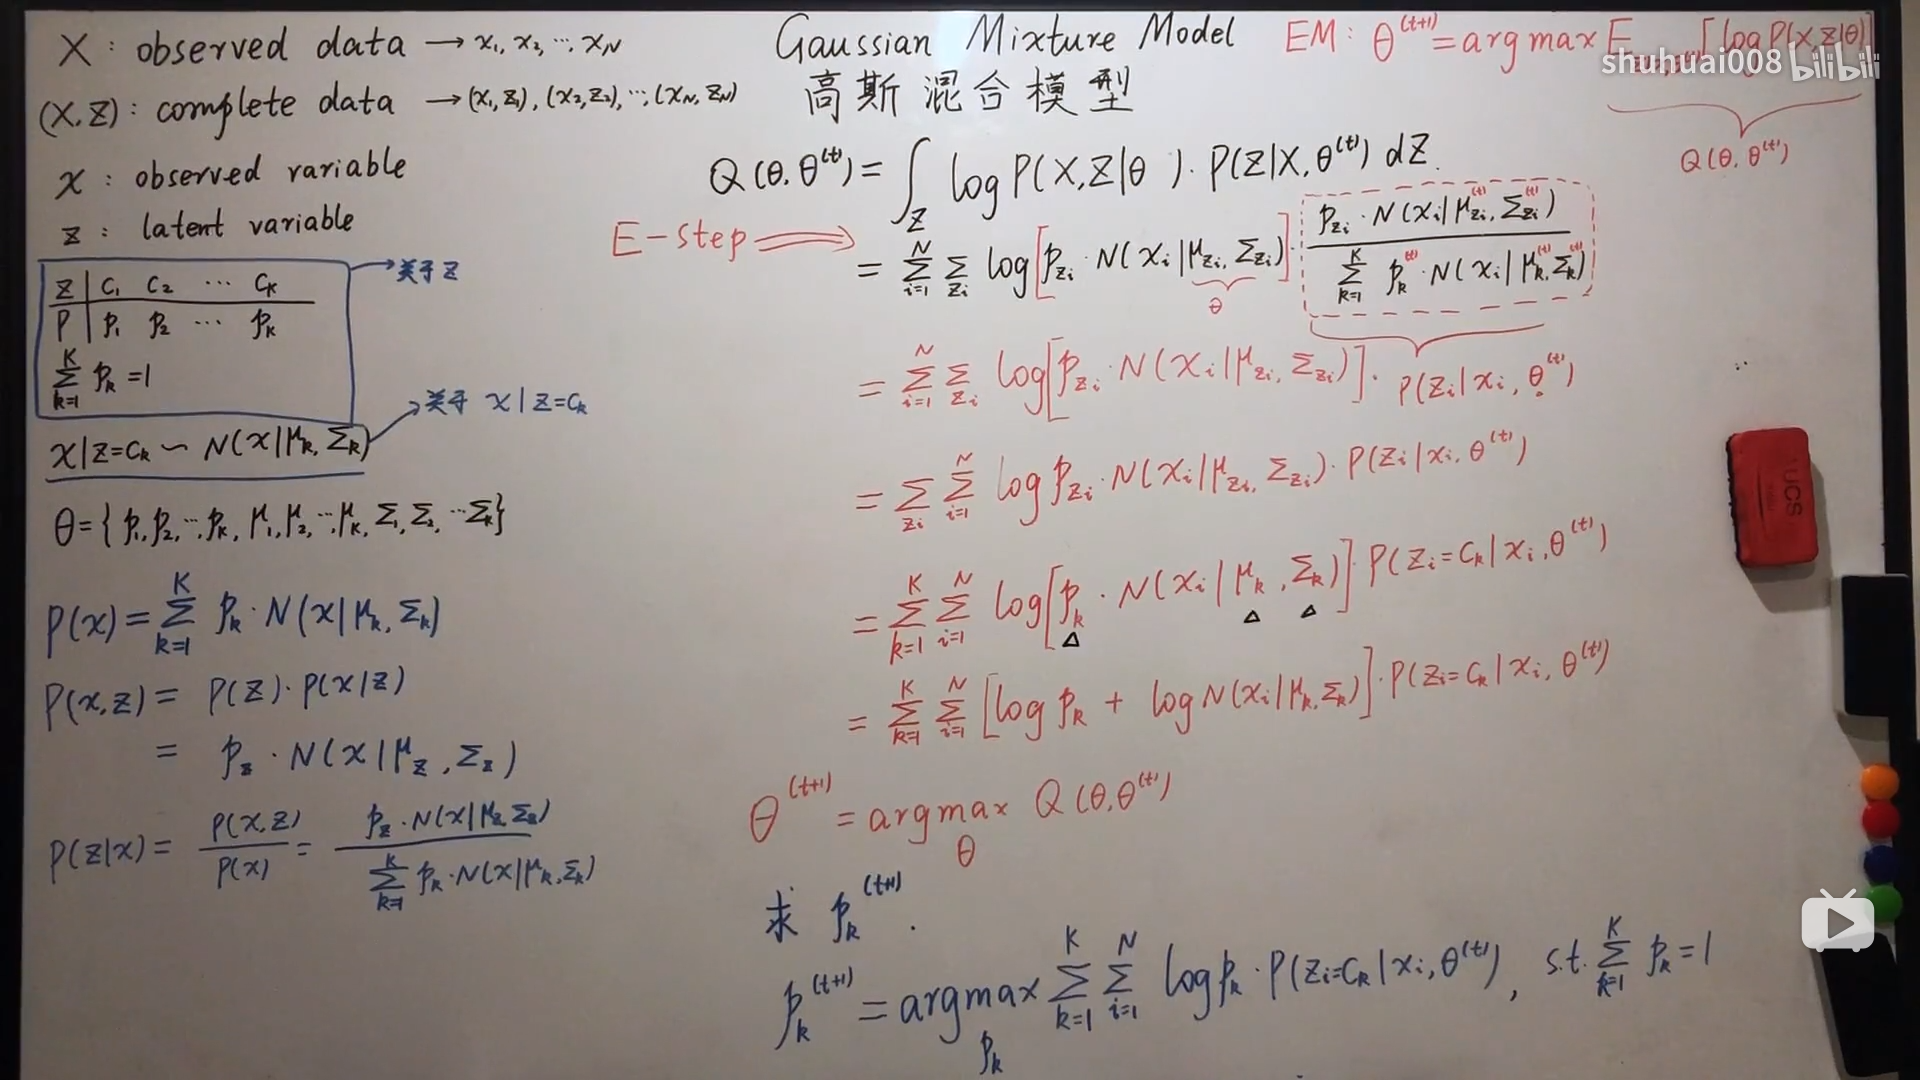 X : observed data → x₁, x₂, ..., x_N
(X, Z) : complete data → (x₁, z₁), (x₂, z₂), ..., (x_N, z_N)
x : observed variable
z : latent variable
z | C₁ C₂ ... C_k
P | p₁ p₂ ... p_k
∑_{k=1}^{K} p_k = 1
→ 关于 z
x|z=C_k ~ N(x|μ_k, Σ_k)
→ 关于 x|z=C_k
θ = { p₁, p₂, ..., p_k, μ₁, μ₂, ..., μ_k, Σ₁, Σ₂, ... Σ_k }
P(x) = ∑_{k=1}^{K} p_k · N(x|μ_k, Σ_k)
P(x,z) = P(z) · P(x|z)
= p_z · N(x|μ_z, Σ_z)
P(z|x) = P(x,z) / P(x) = p_z · N(x|μ_z, Σ_z) / ∑_{k=1}^{K} p_k · N(x|μ_k, Σ_k)
Gaussian Mixture Model
高斯混合模型
EM : θ^(t+1) = argmax E [log P(X,Z|θ)]
Q(θ, θ^(t))
shuhuai008 bilibili
Q(θ, θ^(t)) = ∫_Z log P(X,Z|θ) · P(Z|X, θ^(t)) dZ.
E-step ⇒
= ∑_{i=1}^{N} ∑_{z_i} log [p_{z_i} · N(x_i|μ_{z_i}, Σ_{z_i})] · p_{z_i} · N(x_i|μ_{z_i}^(t), Σ_{z_i}^(t)) / ∑_{k=1}^{K} p_k^(t) · N(x_i|μ_k^(t), Σ_k^(t))
θ
= ∑_{i=1}^{N} ∑_{z_i} log [p_{z_i} · N(x_i|μ_{z_i}, Σ_{z_i})] · P(z_i|x_i, θ^(t))
= ∑_{z_i} ∑_{i=1}^{N} log p_{z_i} · N(x_i|μ_{z_i}, Σ_{z_i}) · P(z_i|x_i, θ^(t))
= ∑_{k=1}^{K} ∑_{i=1}^{N} log [p_k · N(x_i|μ_k, Σ_k)] · P(z_i=C_k|x_i, θ^(t))
= ∑_{k=1}^{K} ∑_{i=1}^{N} [log p_k + log N(x_i|μ_k, Σ_k)] · P(z_i=C_k|x_i, θ^(t))
θ^(t+1) = argmax_θ Q(θ, θ^(t))
求 p_k^(t+1) .
p_k^(t+1) = argmax_{p_k} ∑_{k=1}^{K} ∑_{i=1}^{N} log p_k · P(z_i=C_k|x_i, θ^(t)), s.t. ∑_{k=1}^{K} p_k = 1
UCS